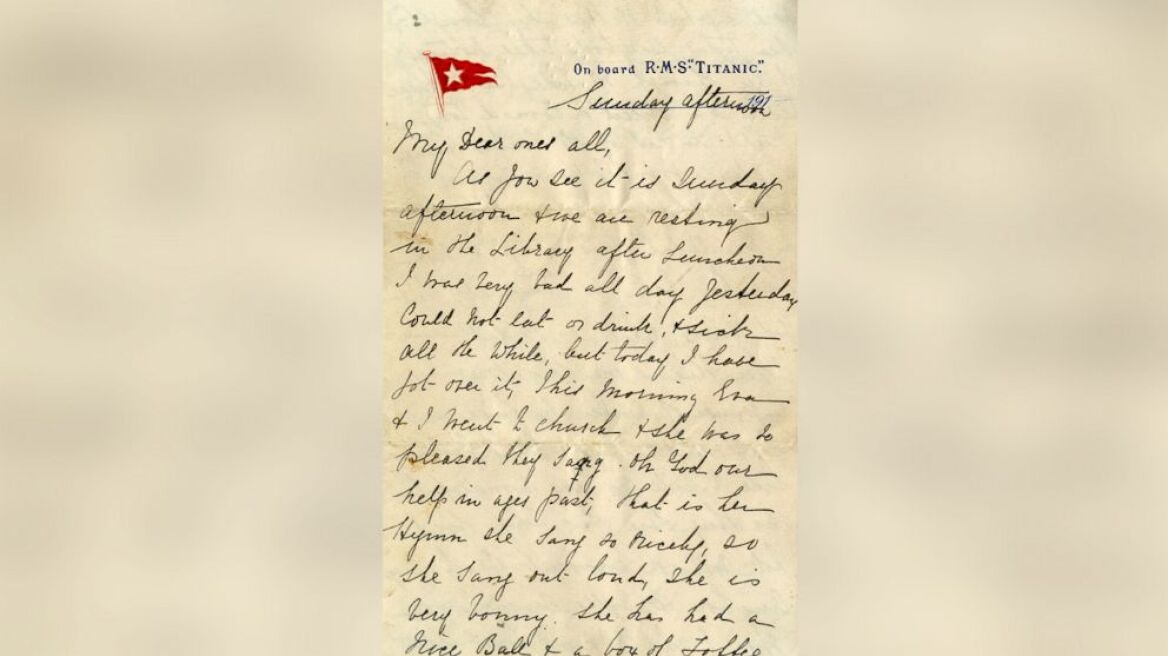 On board R·M·S "TITANIC."
191
Sunday afternoon
My Dear ones all,
As you see it is Sunday
afternoon & we are resting
in the Library after Luncheon
I was very bad all day yesterday
Could not eat or drink, & sick
all the while, but today I have
got over it, This Morning Eva
& I went to church & she was so
pleased they sang. Oh God our
help in ages past, that is her
Hymn she sang so nicely, so
she sang out loud, she is
very bonny. She has had a
Nice Ball & a box of Toffee